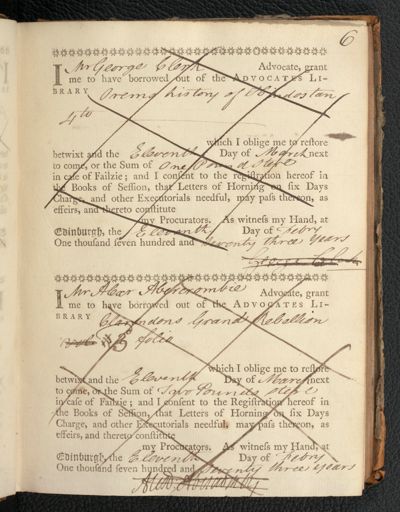 6
I Mr George Clerk Advocate, grant
me to have borrowed out of the ADVOCATES LI-
BRARY Orems history of Indostan
4to
which I oblige me to reſtore
betwixt and the Eleventh Day of March next
to come, or the Sum of One Pound
in caſe of Failzie; and I conſent to the regiſtration hereof in
the Books of Seſſion, that Letters of Horning on ſix Days
Charge, and other Executorials needful, may paſs thereon, as
effeirs, and thereto conſtitute
my Procurators. As witneſs my Hand, at
Edinburgh, the Eleventh Day of Febry
One thouſand ſeven hundred and Seventy three years
George Clerk
I Mr Alexr Abercrombie Advocate, grant
me to have borrowed out of the ADVOCATES LI-
BRARY Clarendons Grand Rebellion
3 folio
which I oblige me to reſtore
betwixt and the Eleventh Day of March next
to come, or the Sum of Two Pounds
in caſe of Failzie; and I conſent to the Regiſtration hereof in
the Books of Seſſion, that Letters of Horning on ſix Days
Charge, and other Executorials needful, may paſs thereon, as
effeirs, and thereto conſtitute
my Procurators. As witneſs my Hand, at
Edinburgh, the Eleventh Day of Febry
One thouſand ſeven hundred and Seventy three years